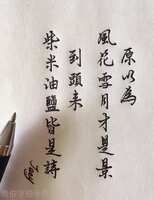 原以為
風花雪月才是景
到頭來
柴米油鹽皆是詩